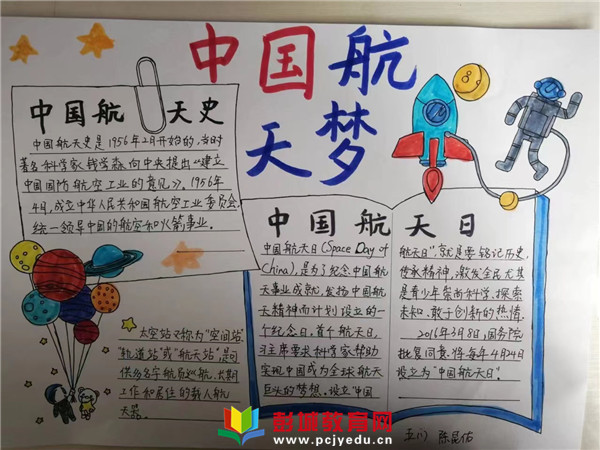 中国航
天梦
中国航天史
中国航天史是1956年2月开始的,当时
著名科学家钱学森向中央提出《建立
中国国防航空工业的意见》,1956年
4月,成立中华人民共和国航空工业委员会,
统一领导中国的航空和火箭事业。
中国航天日
中国航天日(Space Day of
China),是为了纪念中国航
天事业成就,发扬中国航
天精神而计划设立的一
个纪念日,首个航天日,
习主席要求科学家帮助
实现中国成为全球航天
巨头的梦想。设立"中国
航天日",就是要铭记历史,
传承精神,激发全民尤其
是青少年崇尚科学、探索
未知、敢于创新的热情。
2016年3月8日,国务院
批复同意,将每年4月24日
设立为"中国航天日"。
太空站又称为"空间站"
"轨道站"或"航天站",是可
供多名宇航员巡航、长期
工作和居住的载人航
天器。
彭城教育网
www.pcjyedu.cn
五(1) 陈昆佑